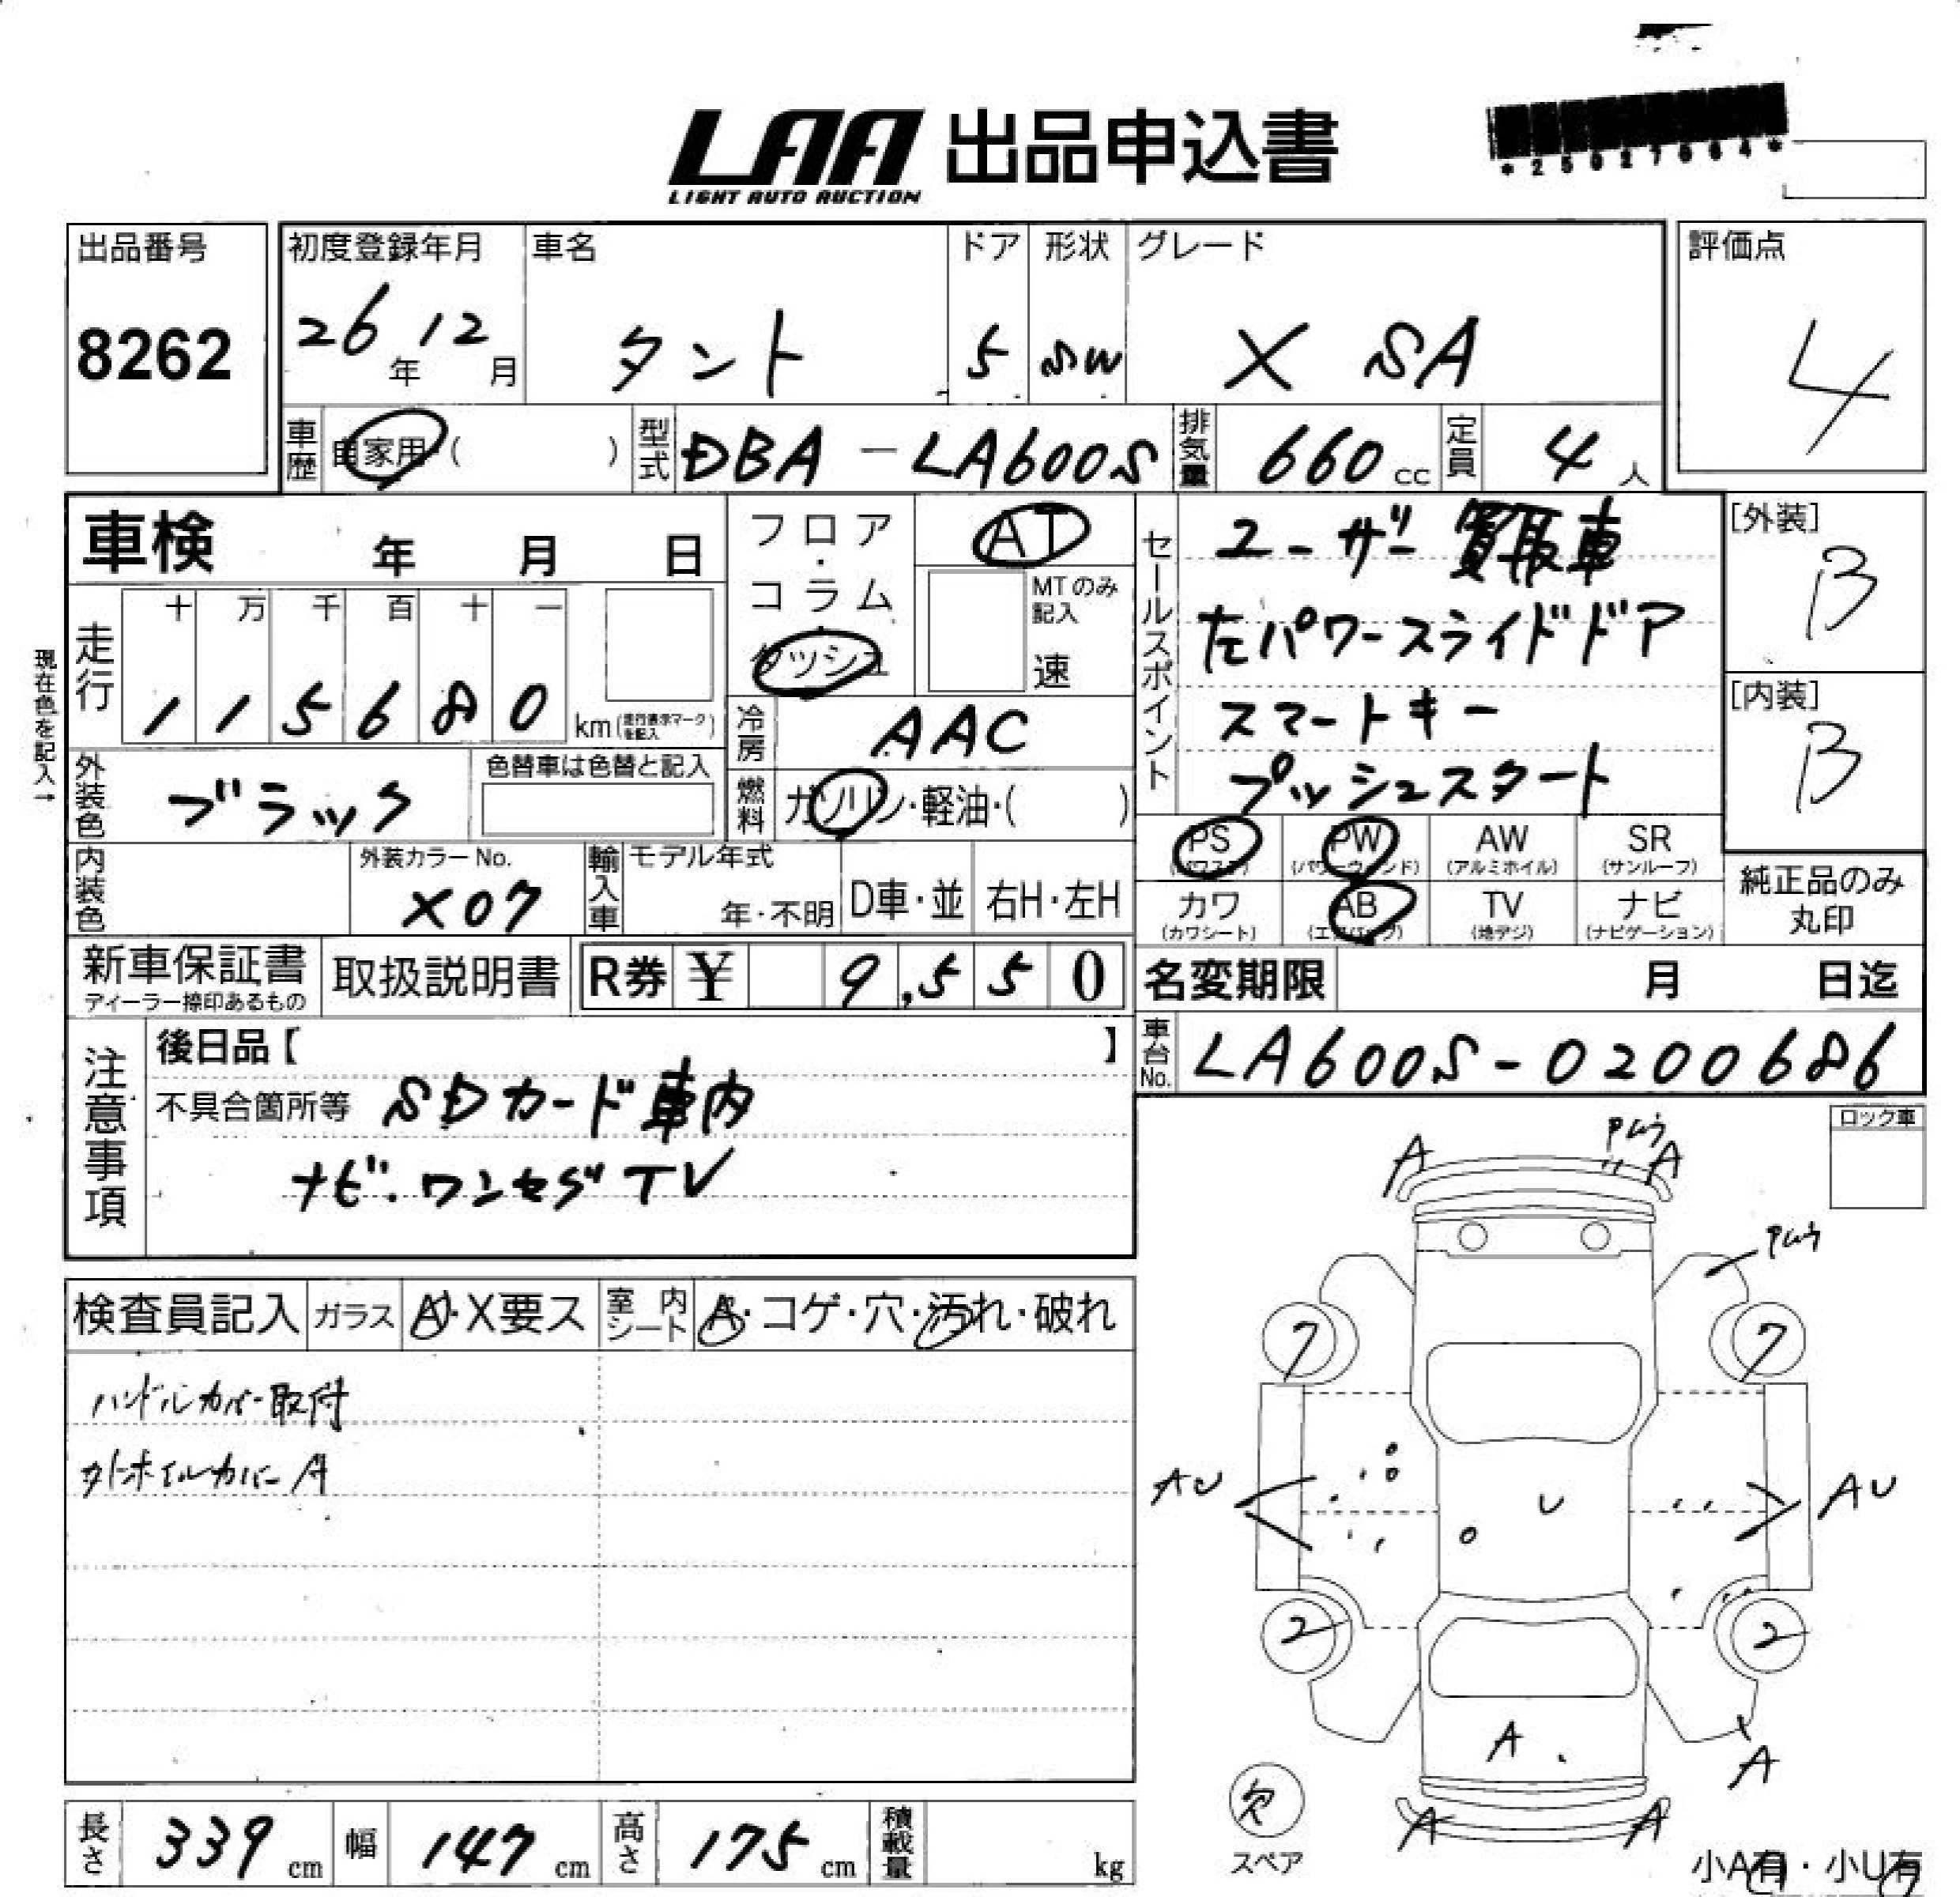 LAA 出品申込書
LIGHT AUTO AUCTION
*25027664*
出品番号
8262
初度登録年月
26年 12月
車名
タント
ドア
5
形状
SW
グレード
X SA
評価点
4
車歴
自家用・( )
型式
DBA-LA600S
排気量
660 cc
定員
4 人
車検 年 月 日
フロア・コラム・ダッシュ
AT
MTのみ記入
速
セールスポイント
ユーザー買取車
左パワースライドドア
スマートキー
プッシュスタート
[外装]
B
[内装]
B
現在色を記入→
走行
十 万 千 百 十 一
1 1 5 6 8 0
km(走行表示マークを記入)
冷房
AAC
外装色
ブラック
色替車は色替と記入
燃料
ガソリン・軽油・( )
内装色
外装カラーNo.
X07
輸入車
モデル年式
年・不明
D車・並
右H・左H
PS
(パワステ)
PW
(パワーウィンド)
AW
(アルミホイル)
SR
(サンルーフ)
カワ
(カワシート)
AB
(エアバック)
TV
(地デジ)
ナビ
(ナビゲーション)
純正品のみ
丸印
新車保証書
ディーラー捺印あるもの
取扱説明書
R券 ¥ 9,550
名変期限 月 日迄
車台No.
LA600S-0200686
注意事項
後日品【 】
不具合箇所等 SDカード車内
ナビ・ワンセグTV
ロック車
検査員記入
ガラス
A・X要ス
室内シート
A・コゲ・穴・汚れ・破れ
ハンドルカバー取付
外ホイルカバーA
A
A
7
7
AU
U
AU
2
2
A
A
A
A
欠
スペア
小A有・小U有
長さ
339 cm
幅
147 cm
高さ
175 cm
積載量
kg